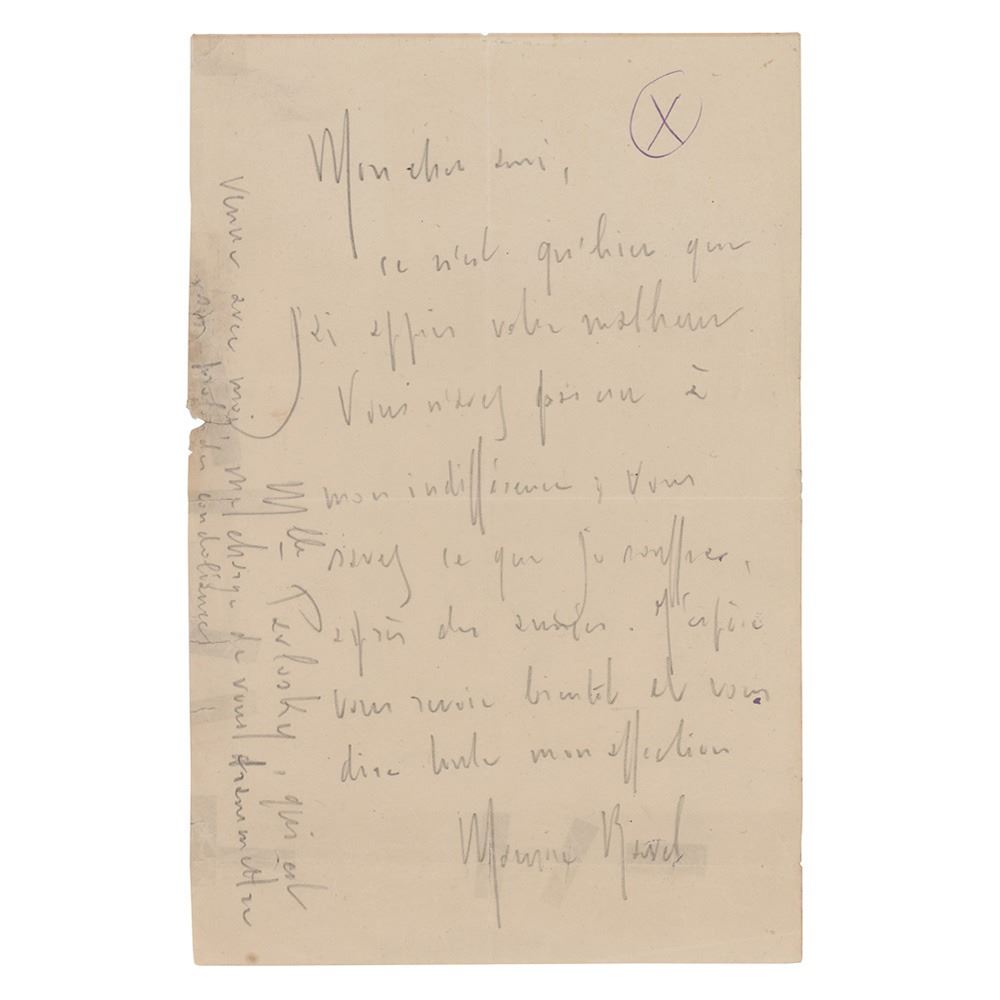 X
Mon cher ami,
ce n'est qu'hier que
j'ai appris votre malheur
Vous n'avez pas cru à
mon indifférence ; vous
savez ce que je souffre,
après des années. J'espère
vous revoir bientôt et vous
dire toute mon affection
Maurice Ravel
Mlle Pavlosky, qui est
venue avec moi, me charge de vous transmettre
ses condoléances